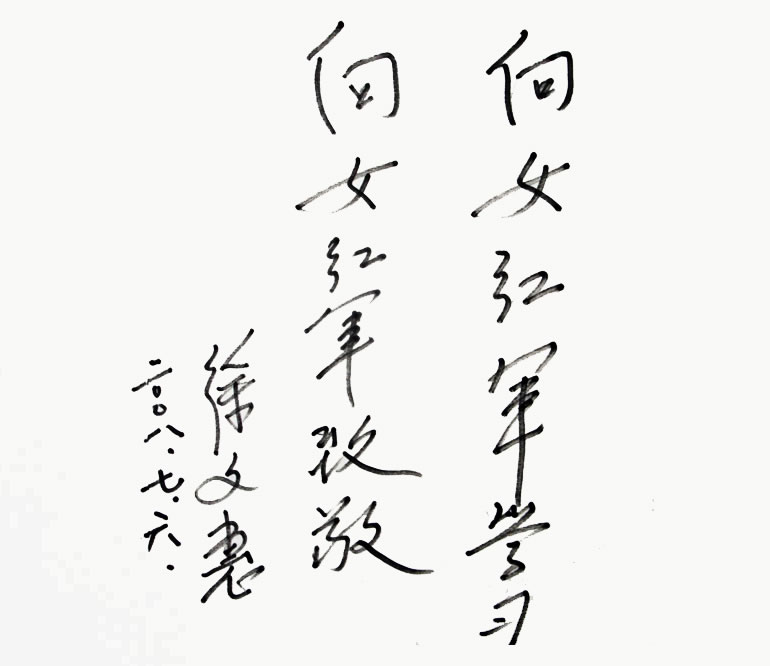 向女红军学习
向女红军致敬
徐文惠
二〇〇八.七.六.